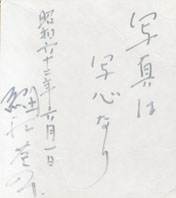 写真は
写心なり
昭和六十二年六月一日